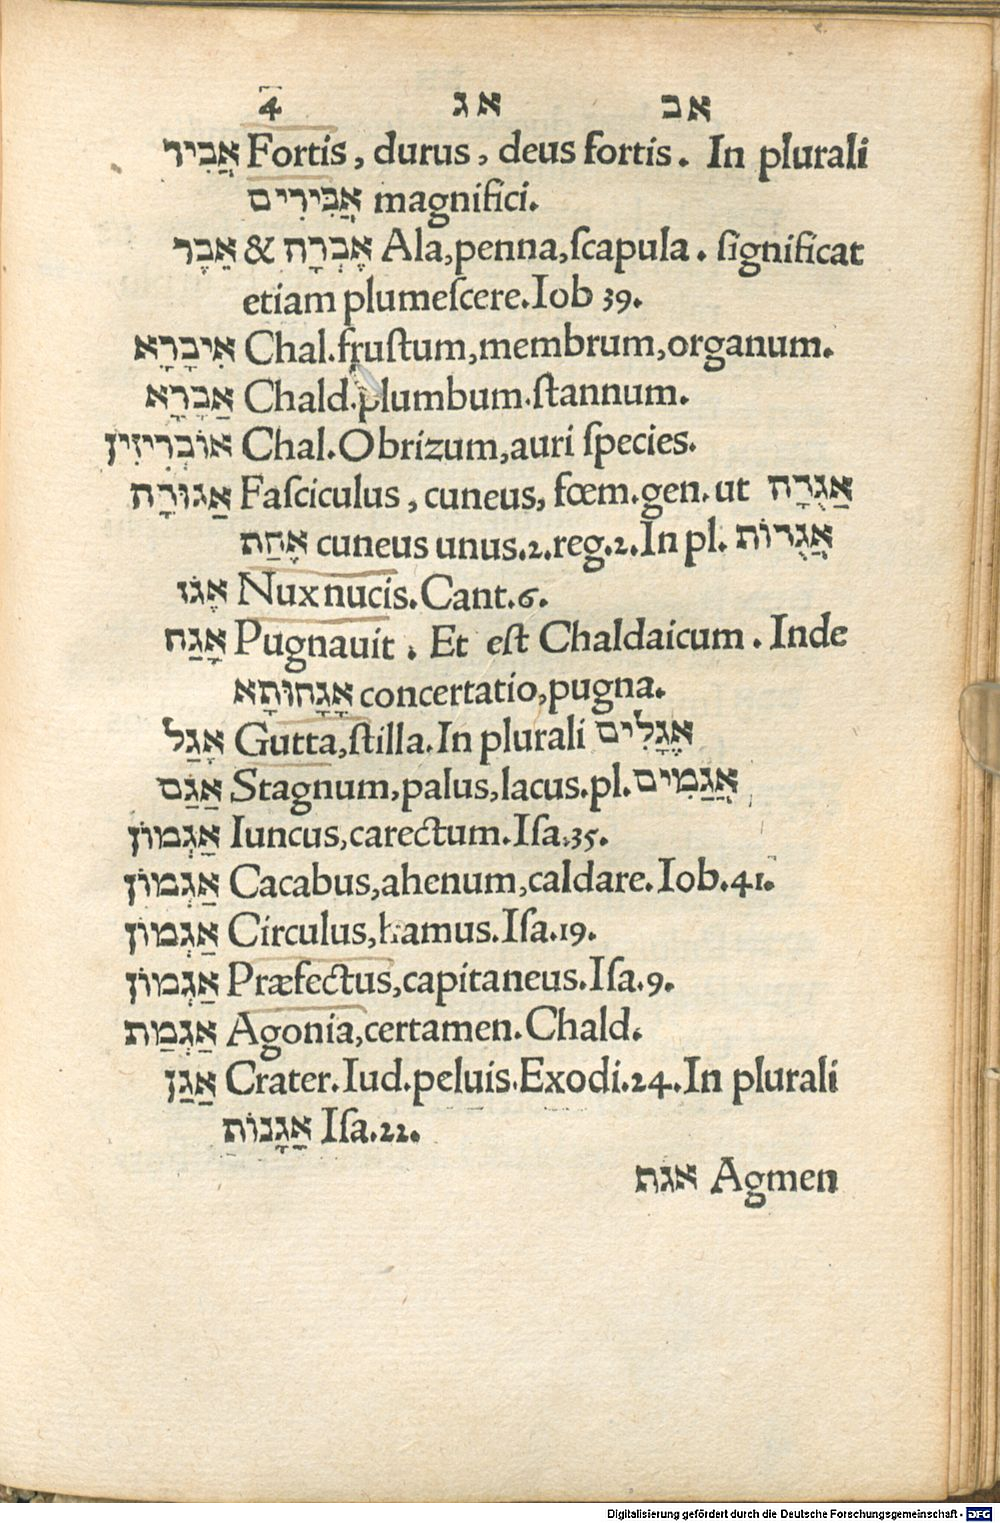 4 אג אב
אֲבִיר Fortis, durus, deus fortis. In plurali
אֲבִּירִים magnifici.
אֵבֶר & אֶבְרָה Ala,penna,ſcapula. ſignificat
etiam plumeſcere.Iob 39.
אִיבָרָא Chal.fruſtum,membrum,organum.
אַבָרָא Chald.plumbum.ſtannum.
אוֹבְרִיזִין Chal.Obrizum,auri ſpecies.
אַגוּרָה Faſciculus, cuneus, fœm.gen.ut אַגֻרָה
אֶחַת cuneus unus.2.reg.2.In pl. אֲגֻרוֹת
אֶגוֹז Nux nucis.Cant.6.
אָגַח Pugnauit. Et eſt Chaldaicum. Inde
אָגָחוּתָא concertatio,pugna.
אָגַל Gutta,ſtilla.In plurali אֶגָלִים
אַגַם Stagnum,palus,lacus.pl.אֲגַמִּים
אַגְמוֹן Iuncus,carectum.Iſa.35.
אַגְמוֹן Cacabus,ahenum,caldare.Iob.41.
אַגְמוֹן Circulus,hamus.Iſa.19.
אַגְמוֹן Præfectus,capitaneus.Iſa.9.
אַגְמַת Agonia,certamen.Chald.
אַגַן Crater.Iud.peluis.Exodi.24.In plurali
אָגָנוֹת Iſa.22.
אגת Agmen
Digitalisierung gefördert durch die Deutsche Forschungsgemeinschaft - DFG